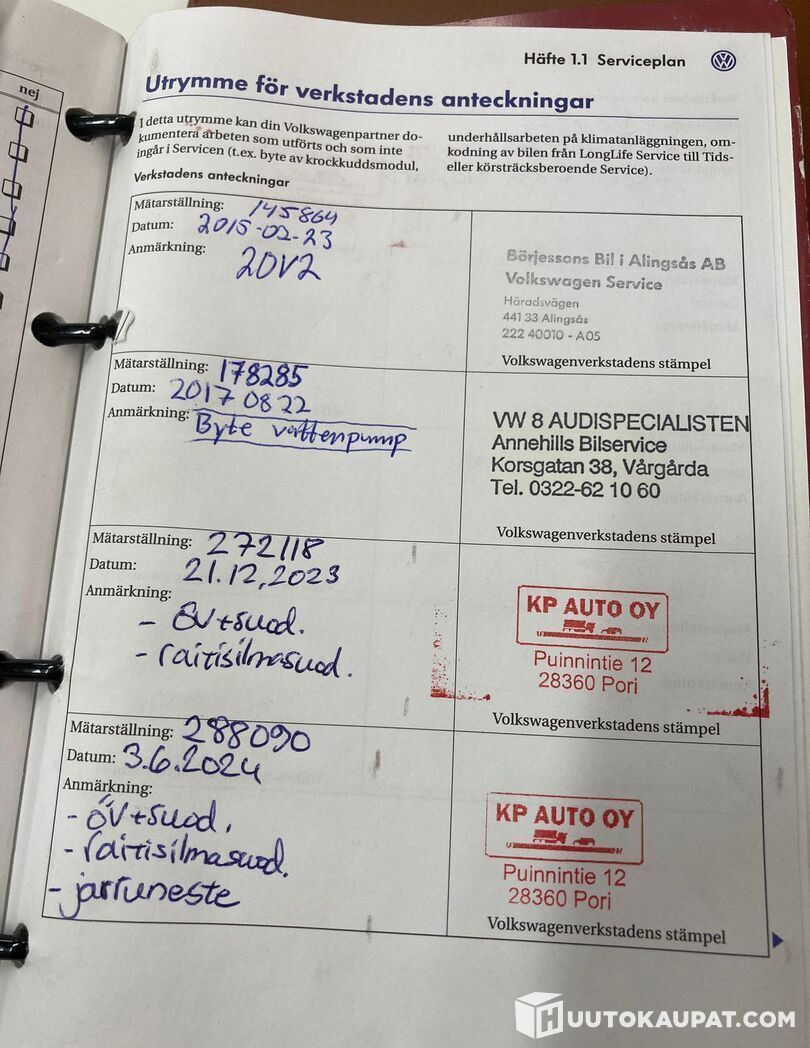 nej
Häfte 1.1 Serviceplan
Utrymme för verkstadens anteckningar
I detta utrymme kan din Volkswagenpartner do-
kumentera arbeten som utförts och som inte
ingår i Servicen (t.ex. byte av krockkuddsmodul,
underhållsarbeten på klimatanläggningen, om-
kodning av bilen från LongLife Service till Tids-
eller körsträcksberoende Service).
Verkstadens anteckningar
Mätarställning: 145864
Datum: 2015-02-23
Anmärkning:
20V2
Börjessons Bil i Alingsås AB
Volkswagen Service
Häradsvägen
441 33 Alingsås
222 40010 - A05
Volkswagenverkstadens stämpel
Mätarställning: 178285
Datum: 2017 08 22
Anmärkning: Byte vattenpump
VW & AUDISPECIALISTEN
Annehills Bilservice
Korsgatan 38, Vårgårda
Tel. 0322-62 10 60
Volkswagenverkstadens stämpel
Mätarställning: 272118
Datum: 21.12,2023
Anmärkning:
- öv+suod.
- raitisilmasuod.
KP AUTO OY
Puinnintie 12
28360 Pori
Volkswagenverkstadens stämpel
Mätarställning: 288090
Datum: 3.6.2024
Anmärkning:
- öv+suod.
- raitisilmasuod.
- jarruneste
KP AUTO OY
Puinnintie 12
28360 Pori
Volkswagenverkstadens stämpel
HUUTOKAUPAT.COM